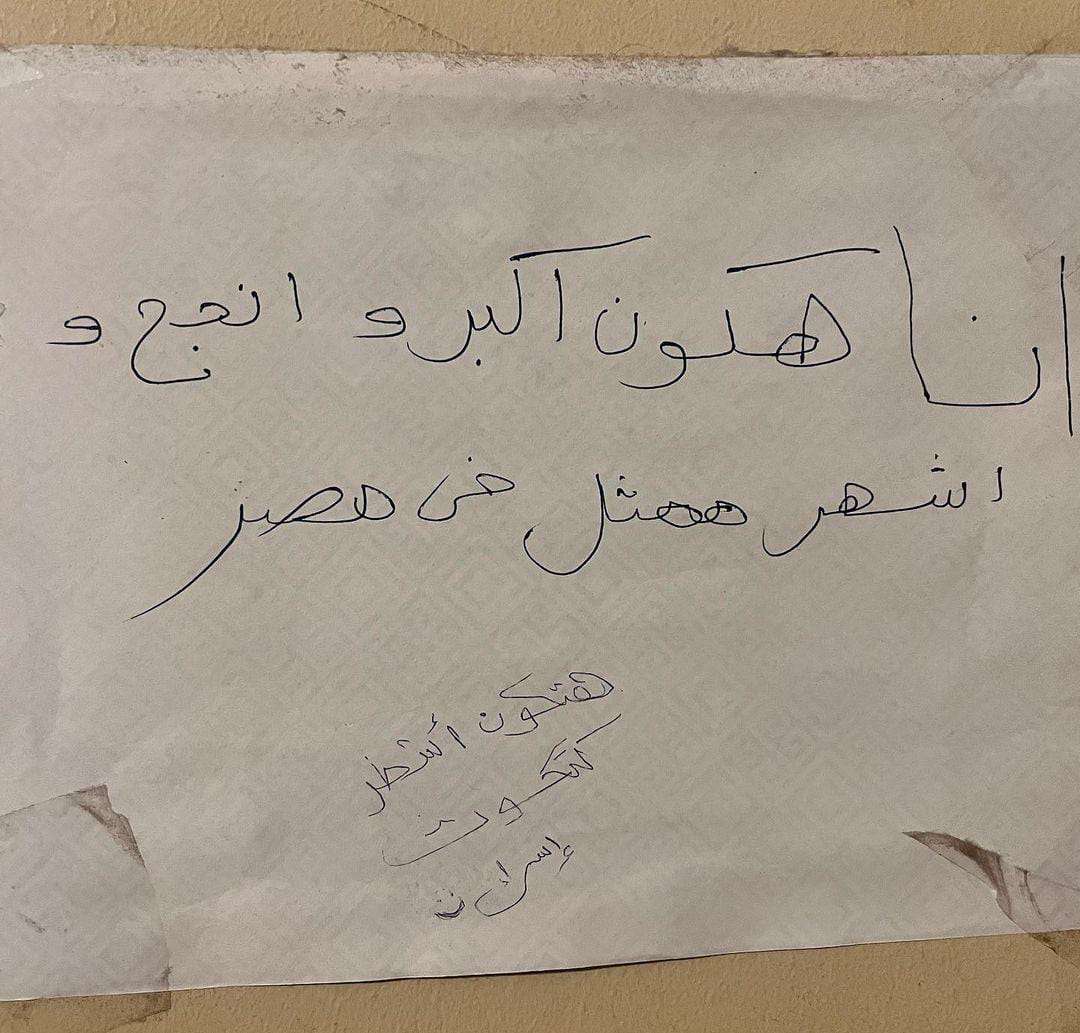 انا هكون اكبر و انجح و
اشهر ممثل فى مصر
هتكون أشطر
كتكوت
إسراء